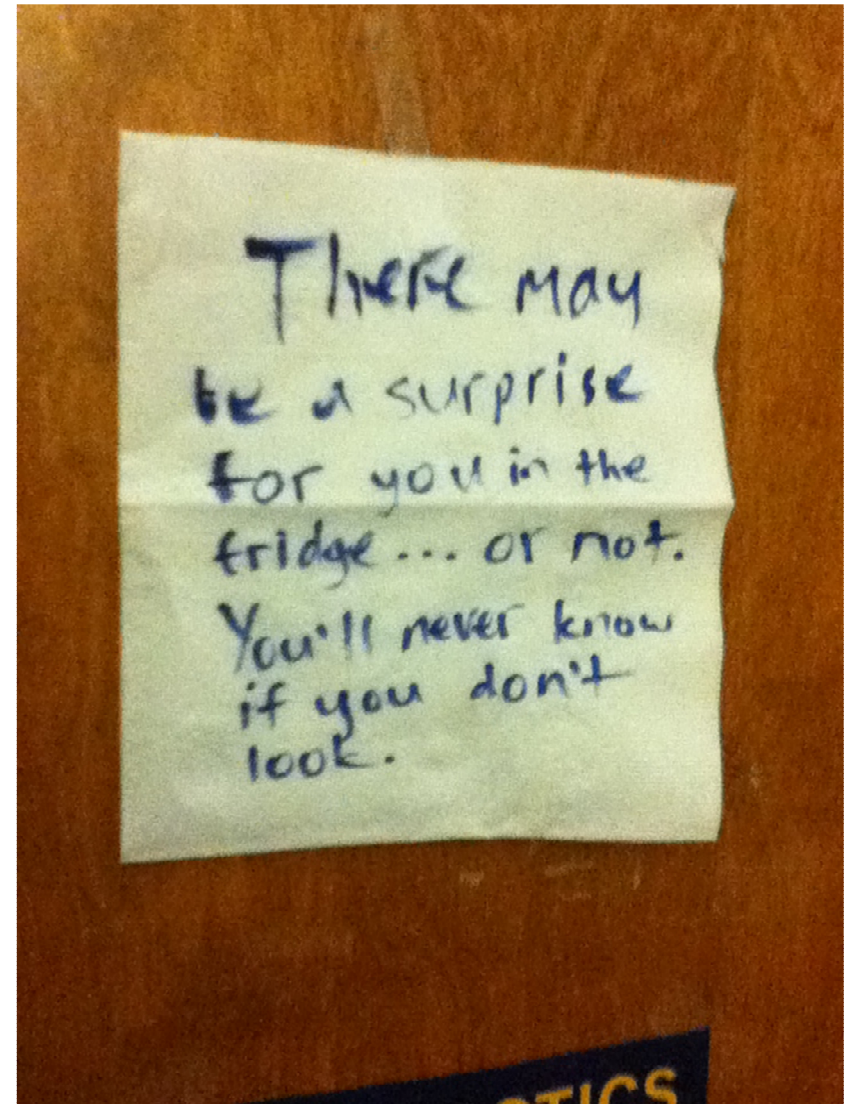 There may
be a surprise
for you in the
fridge... or not.
You'll never know
if you don't
look.